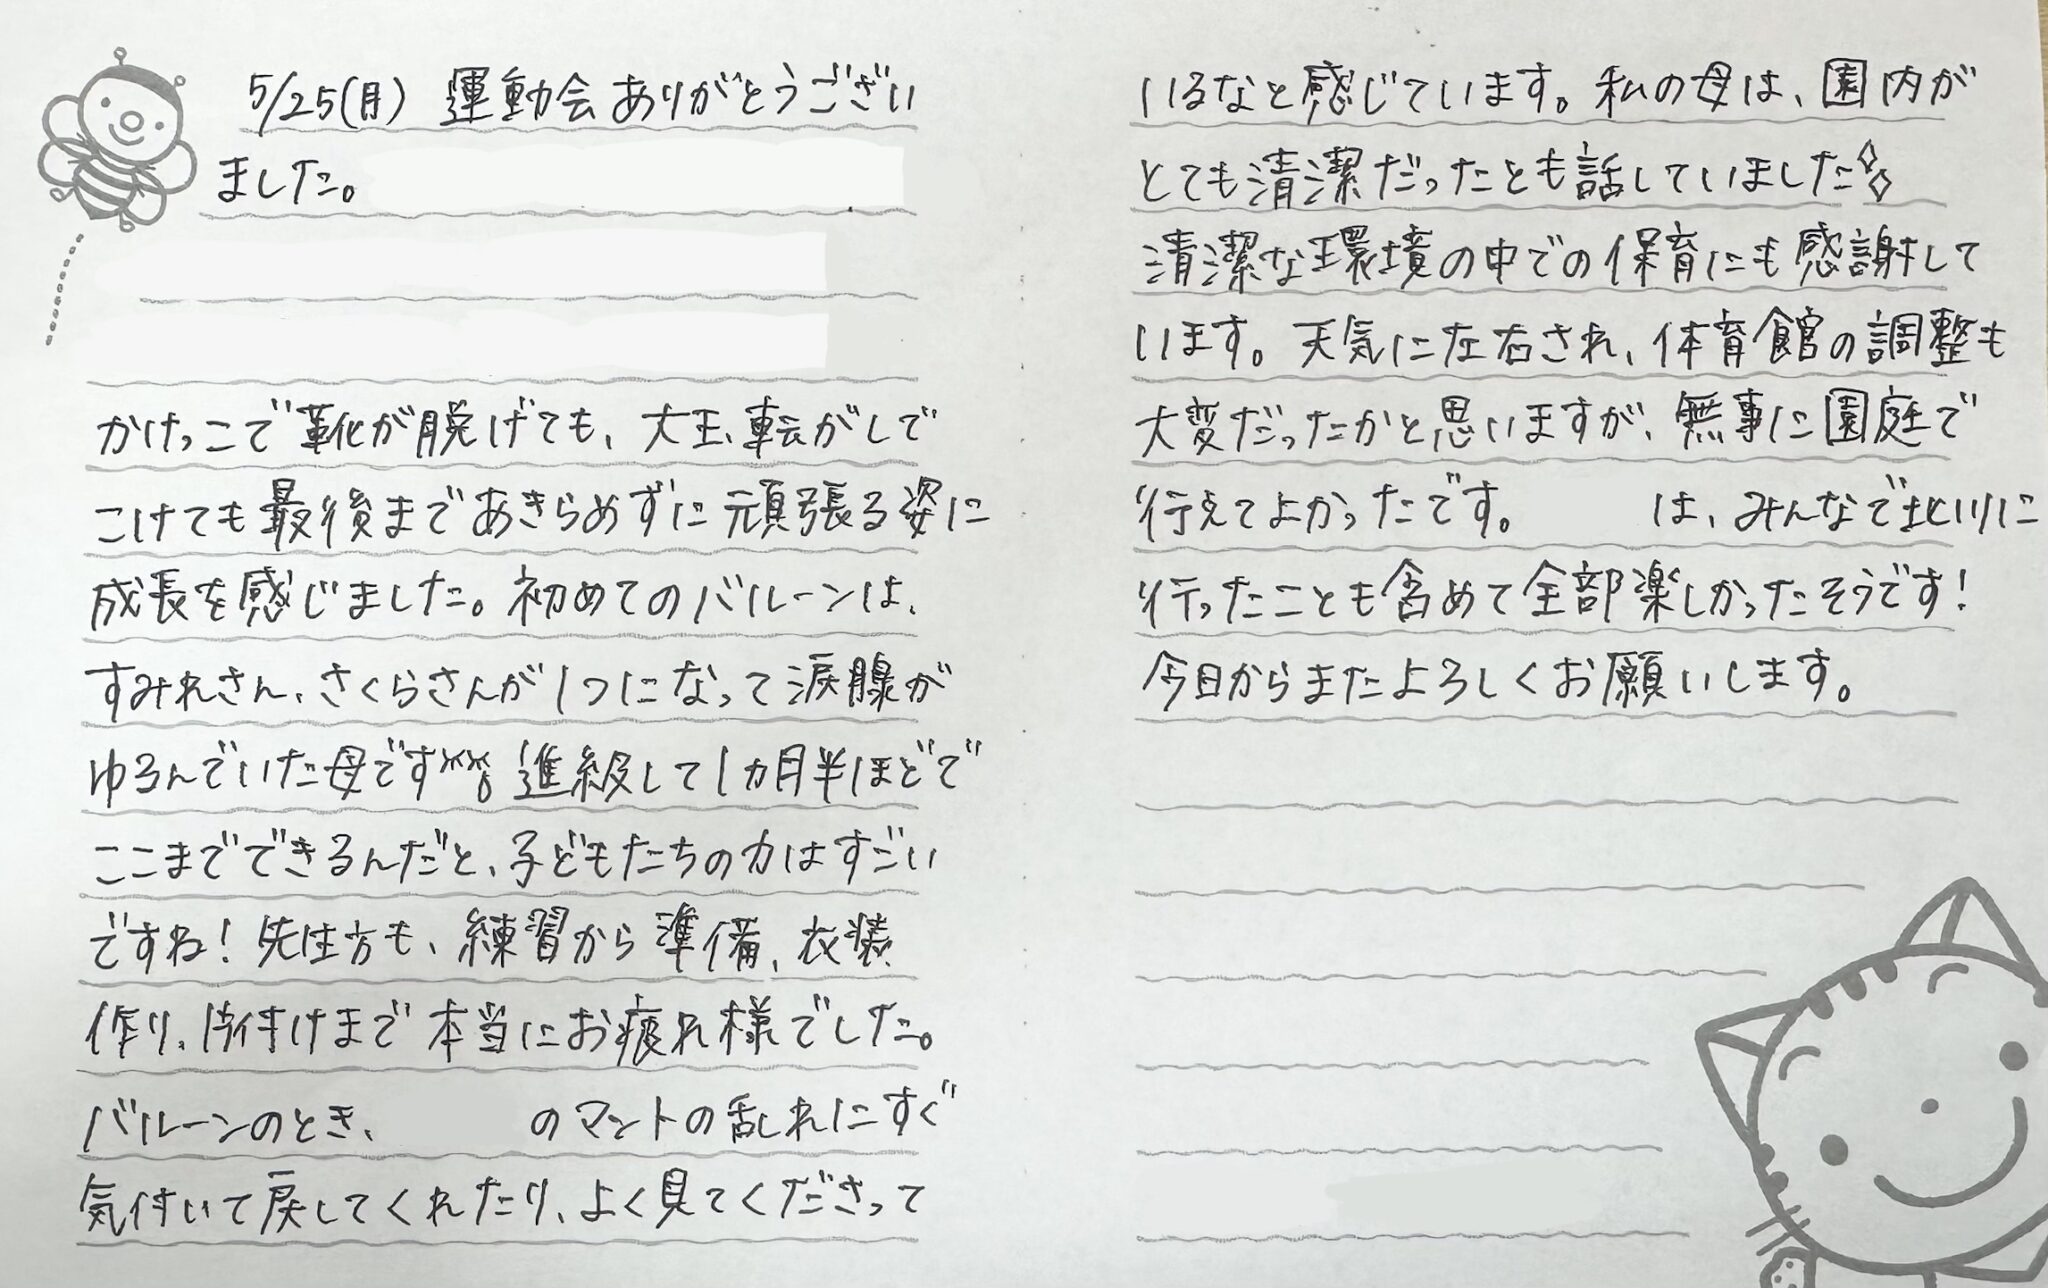 5/25(月) 運動会ありがとうござい
ました。
かけっこで靴が脱げても、大玉転がしで
こけても最後まであきらめずに頑張る姿に
成長を感じました。初めてのバルーンは、
すみれさん、さくらさんが1つになって涙腺が
ゆるんでいた母です 進級して1ヵ月半ほどで
ここまでできるんだと、子どもたちの力はすごい
ですね!先生方も、練習から準備、衣装
作り、片付けまで本当にお疲れ様でした。
バルーンのとき、 のマントの乱れにすぐ
気付いて戻してくれたり、よく見てくださって
いるなと感じています。私の母は、園内が
とても清潔だったとも話していました
清潔な環境の中での保育にも感謝して
います。天気に左右され、体育館の調整も
大変だったかと思いますが、無事に園庭で
行えてよかったです。 は、みんなで北川に
行ったことも含めて全部楽しかったそうです!
今日からまたよろしくお願いします。